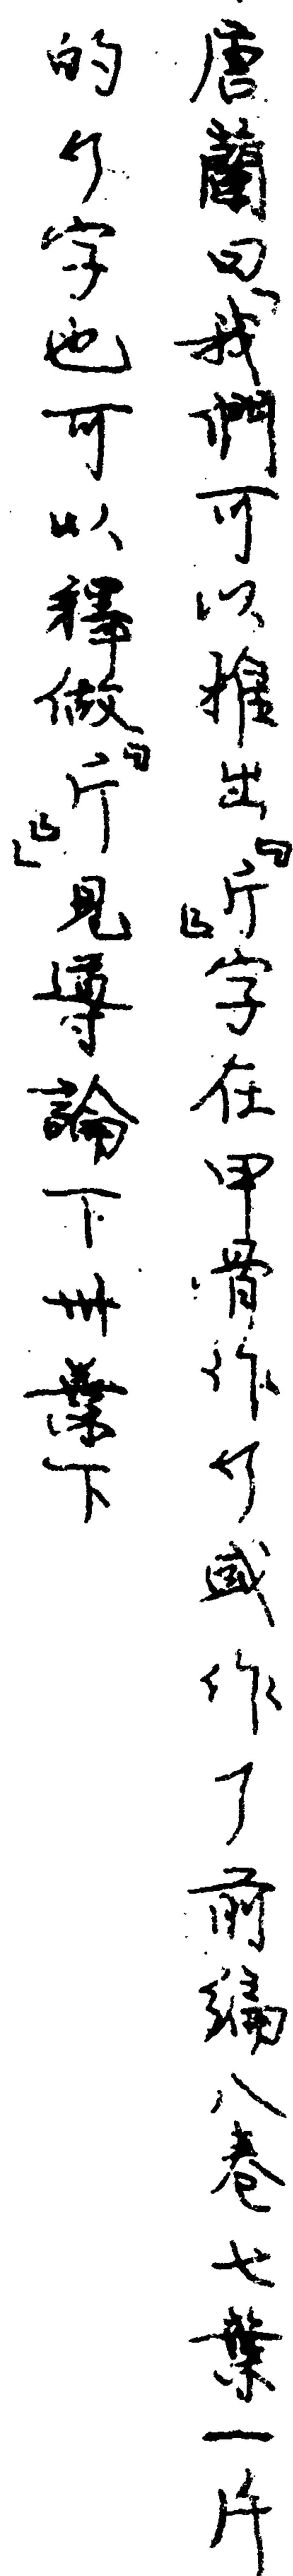 唐蘭曰「我們可以推出『斤』字在甲骨作𠂆或作㇇前編八卷七葉一片
的字也可以釋做『斤』」見導論下卅葉下